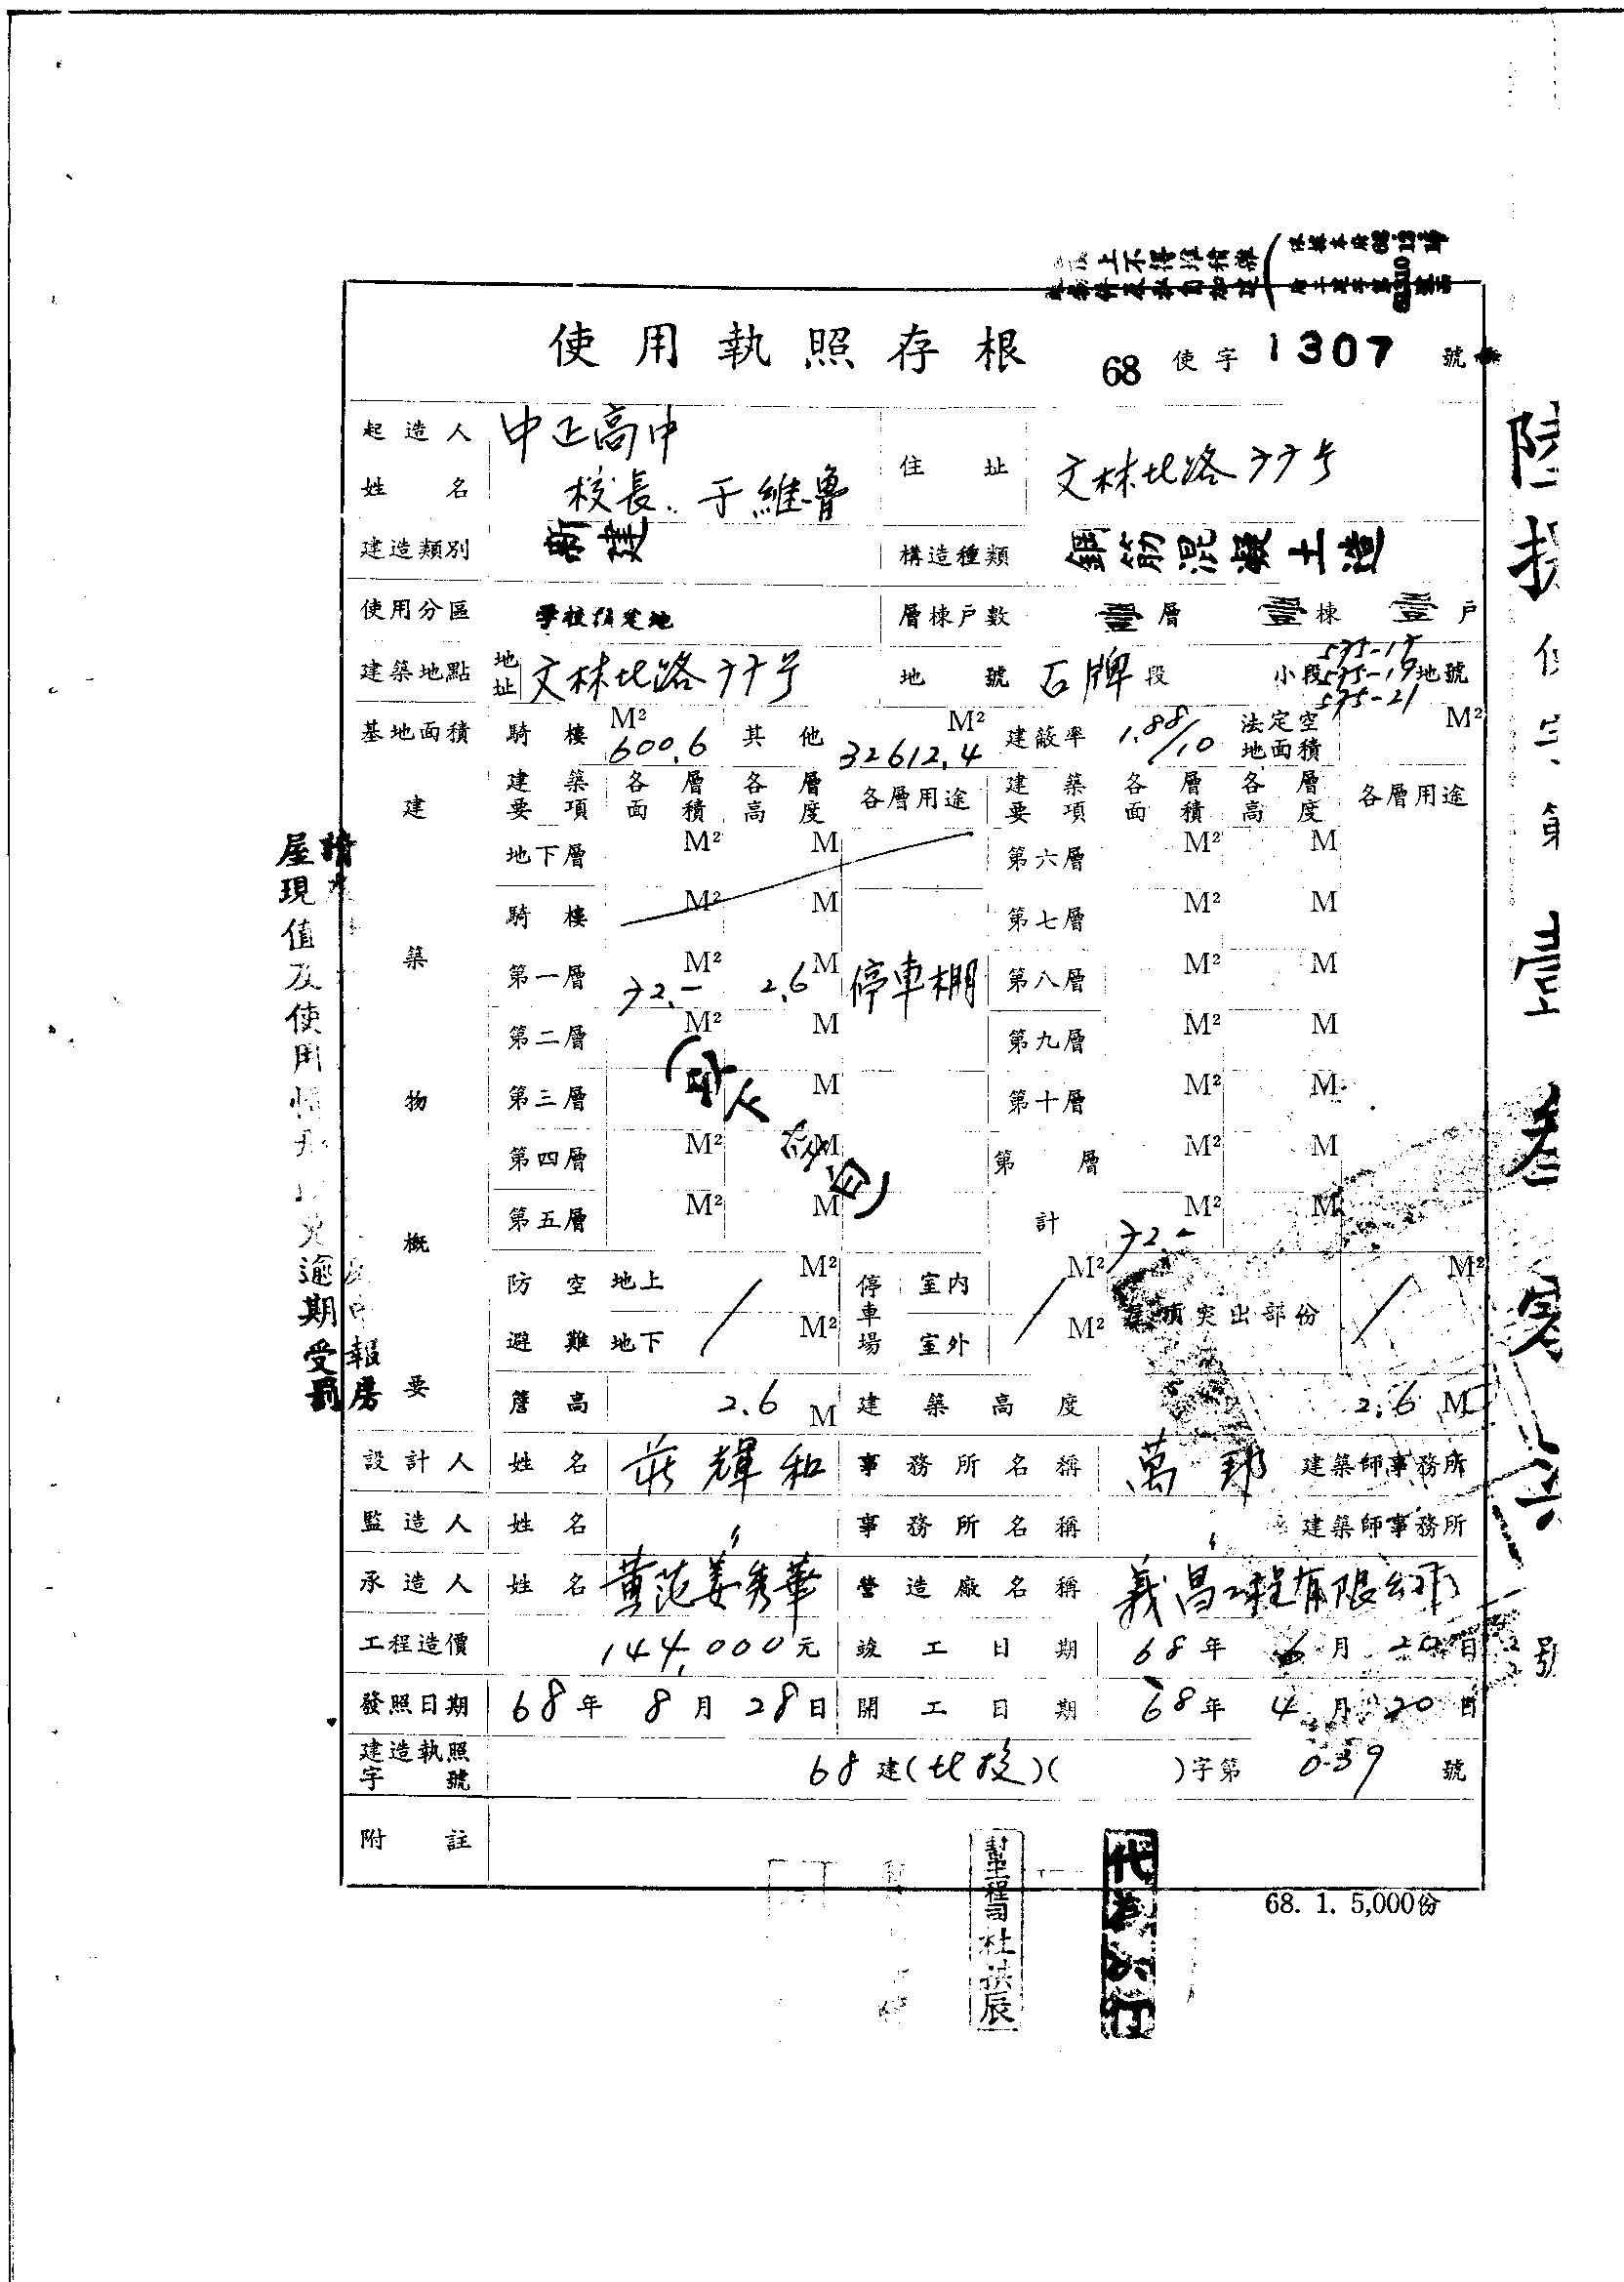 使用執照存根 68 使字 1307 號
起造人姓名 中正高中 校長 于維魯 住址 文林北路77号
建造類別 新建 構造種類 鋼筋混凝土造
使用分區 學校預定地 層棟戶數 壹層 壹棟 壹戶
建築地點 地址 文林北路77号 地號 石牌段 小段 575-15 575-19 575-21 地號
基地面積 騎樓 600.6 M² 其他 32612.4 M² 建蔽率 1.88/10 法定空地面積 M²
建築物概要
建築要項 各層面積 各層高度 各層用途 建築要項 各層面積 各層高度 各層用途
地下層 M² M 第六層 M² M
騎樓 M² M 第七層 M² M
第一層 72.- M² 2.6 M 停車棚 第八層 M² M
第二層 M² M 第九層 M² M
第三層 M 第十層 M² M
第四層 M² M 第 層 M² M
第五層 M² M 計 72.- M² M
防空避難 地上 M² 停車場 室內 M² 屋頂突出部份 M²
地下 M² 室外 M²
簷高 2.6 M 建築高度 2.6 M
設計人 姓名 莊輝和 事務所名稱 萬邦 建築師事務所
監造人 姓名 〃 事務所名稱 〃 建築師事務所
承造人 姓名 黃范姜秀華 營造廠名稱 義昌工程有限公司
工程造價 144,000元 竣工日期 68年 6月 20日
發照日期 68年 8月 28日 開工日期 68年 4月 20日
建造執照字號 68建(北投)( )字第 039 號
附註
68. 1. 5,000份
屋現值及使用
逾期受罰
報房
工程司 杜
號